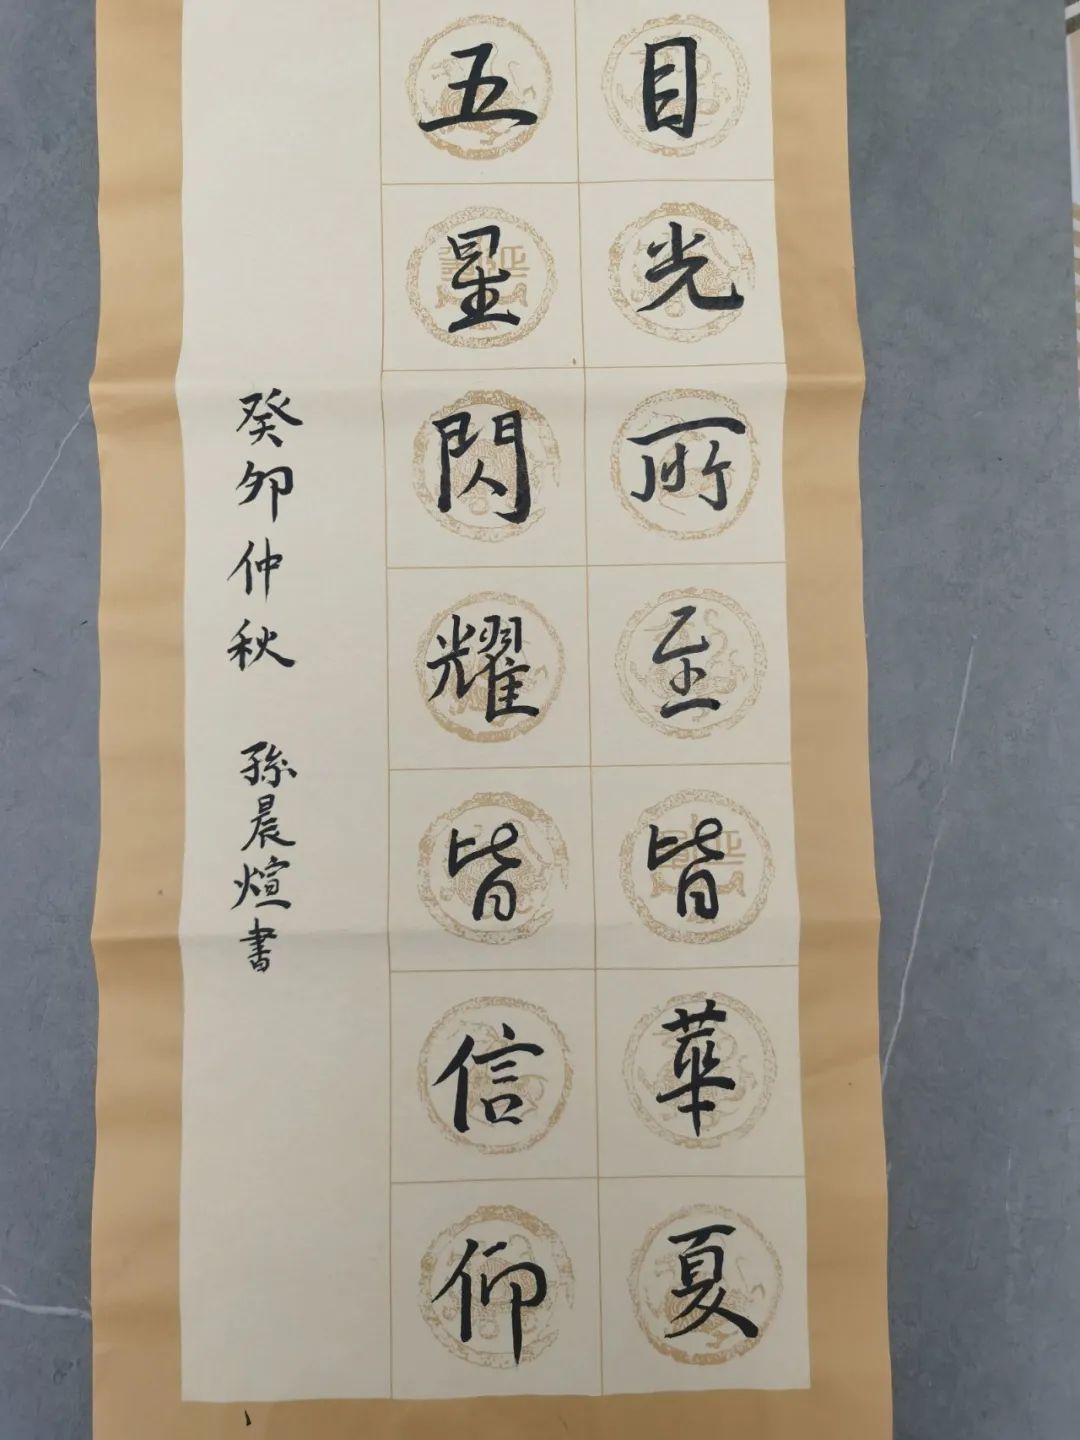 目光所至皆華夏
五星閃耀皆信仰
癸卯仲秋 孫晨煊書